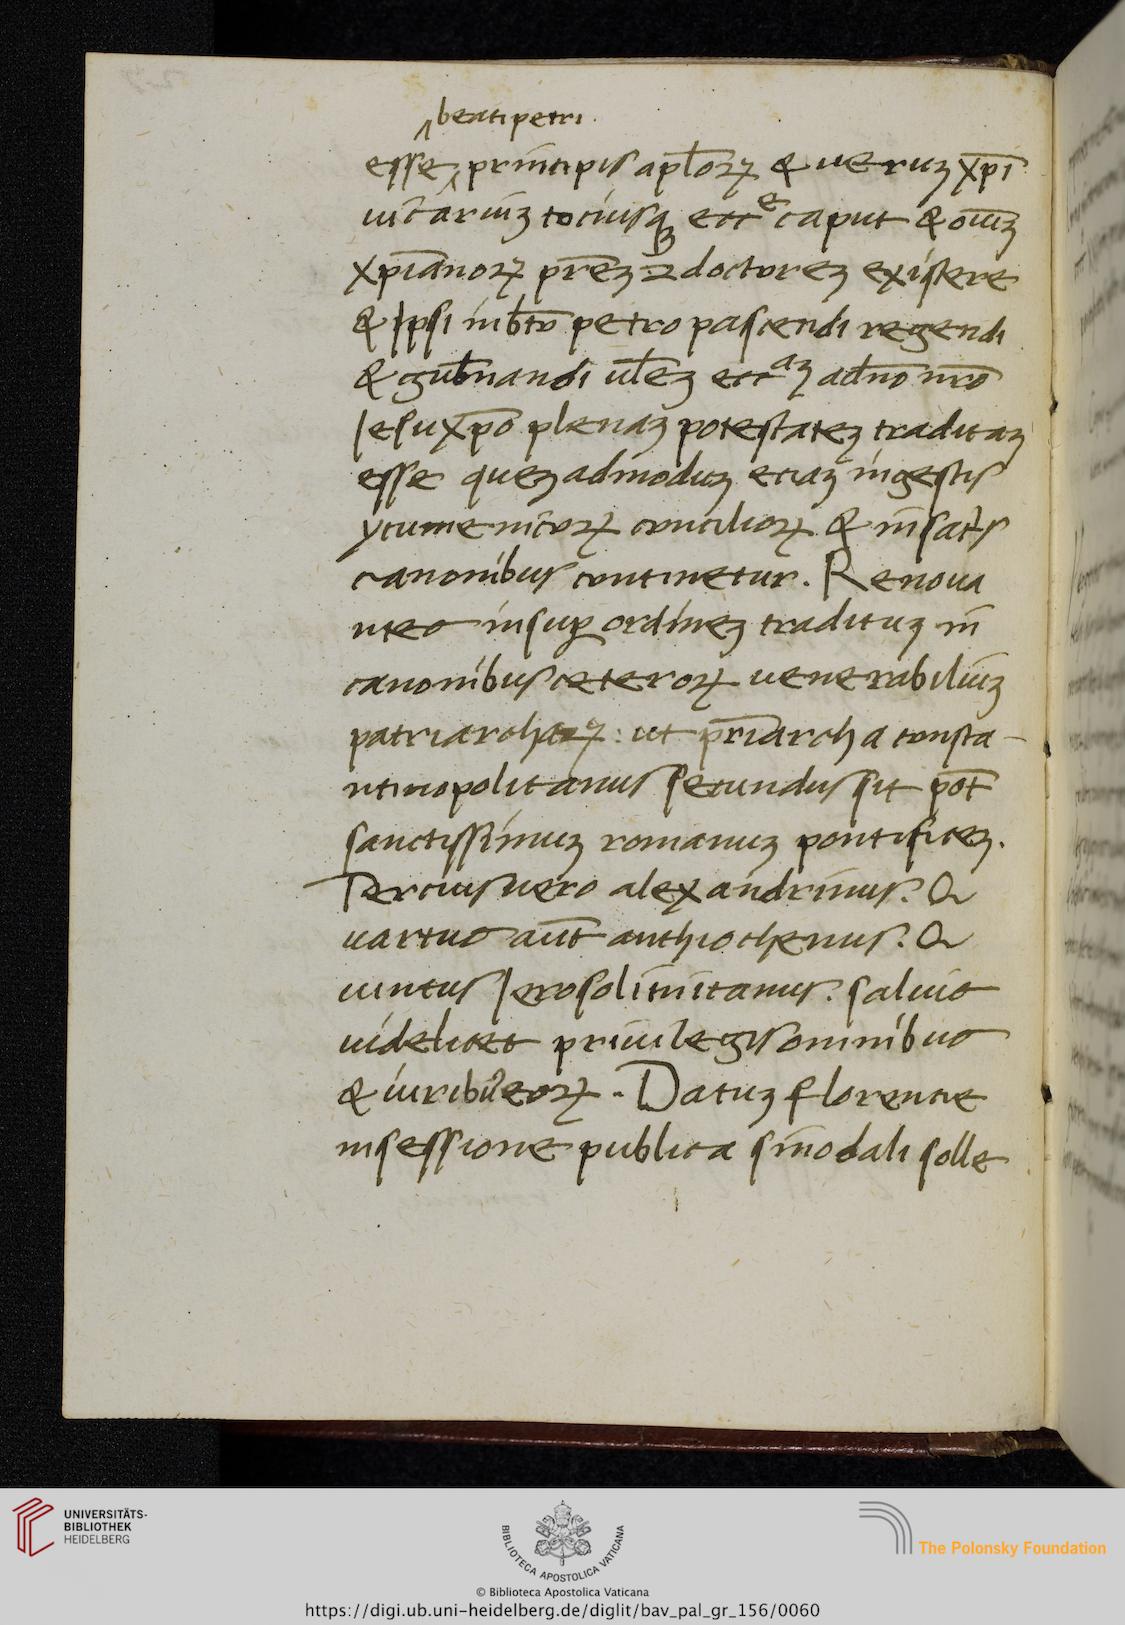 beati petri
esse principis apl̄oꝝ & ueruꝫ xp̄i
uic̄ariuꝫ tociusqꝫ eccᵉ caput & oīuꝫ
xpīanoꝝ pr̄eꝫ ⁊ doctoreꝫ existere
& Ipsi inb̄to petro pascendi regendi
& gub̄nandi ul̄eꝫ eccᵃꝫ ad̄no nr̄o
Jesu xp̄o plenaꝫ potestateꝫ traditaꝫ
esse quezadmoduꝫ eciaꝫ ingestis
ycumenicoꝝ concilioꝝ & in sac̄s
canonibus continetur. Renoua
ntes insuꝑ ordineꝫ tradituꝫ in
canonibus ceteroꝝ uenerabiliuꝫ
patriarchaꝝ: ut pr̄iarcha consta-
ntinopolitanus secundus sit pos̄t
sanctissimuꝫ romanuꝫ pontificeꝫ.
Tercius uero alexandrinus. Q
uartus aūt anthiochenus. Q
uintus Jerosolimitanus. saluis
uidelicet priuilegis omnibus
& iuribus eoꝝ. Datuꝫ florencie
in sessione publica sinodali solle
UNIVERSITÄTS-
BIBLIOTHEK
HEIDELBERG
BIBLIOTECA APOSTOLICA VATICANA
The Polonsky Foundation
© Biblioteca Apostolica Vaticana
https://digi.ub.uni-heidelberg.de/diglit/bav_pal_gr_156/0060